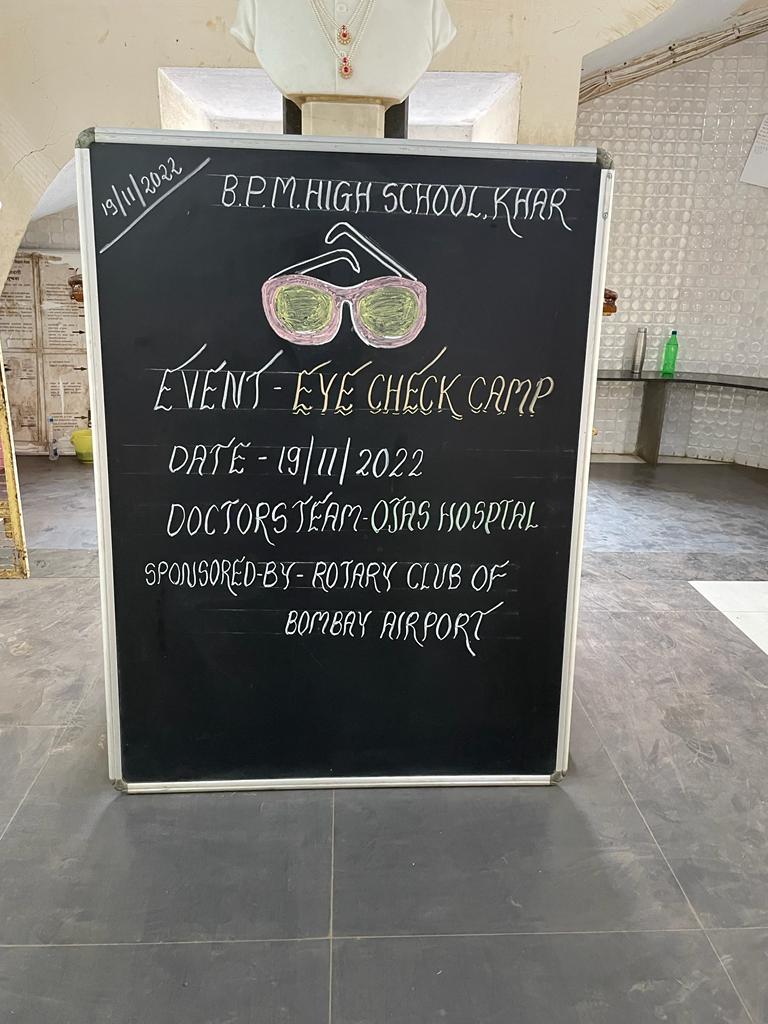 19/11/2022
B.P.M. HIGH SCHOOL, KHAR
EVENT - EYE CHECK CAMP
DATE - 19/11/2022
DOCTORS TEAM - OJAS HOSPTAL
SPONSORED-BY - ROTARY CLUB OF
BOMBAY AIRPORT